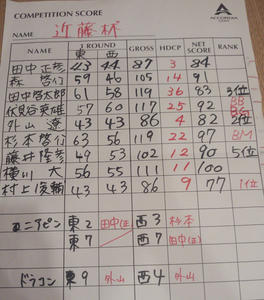 COMPETITION SCORE
ACCORDIA GOLF
NAME 近藤杯
ROUND GROSS HDCP NET SCORE RANK
NAME 東 西
田中正彦 43 44 87 3 84
森 啓行 59 46 105 14 91
田中啓太郎 61 58 119 36 83 3位
伏見英雄 57 60 117 25 92 BB
外山 遼 43 43 86 4 82 2位
杉本啓行 63 56 119 22 97 BM
藤井隆彦 49 53 102 12 90 5位
大 56 55 111 11 100
村上俊輔 43 43 86 9 77 1位
ニアピン 東2 田中(正) 西3 杉本
東7 西7 田中(正)
ドラコン 東9 外山 西4 外山